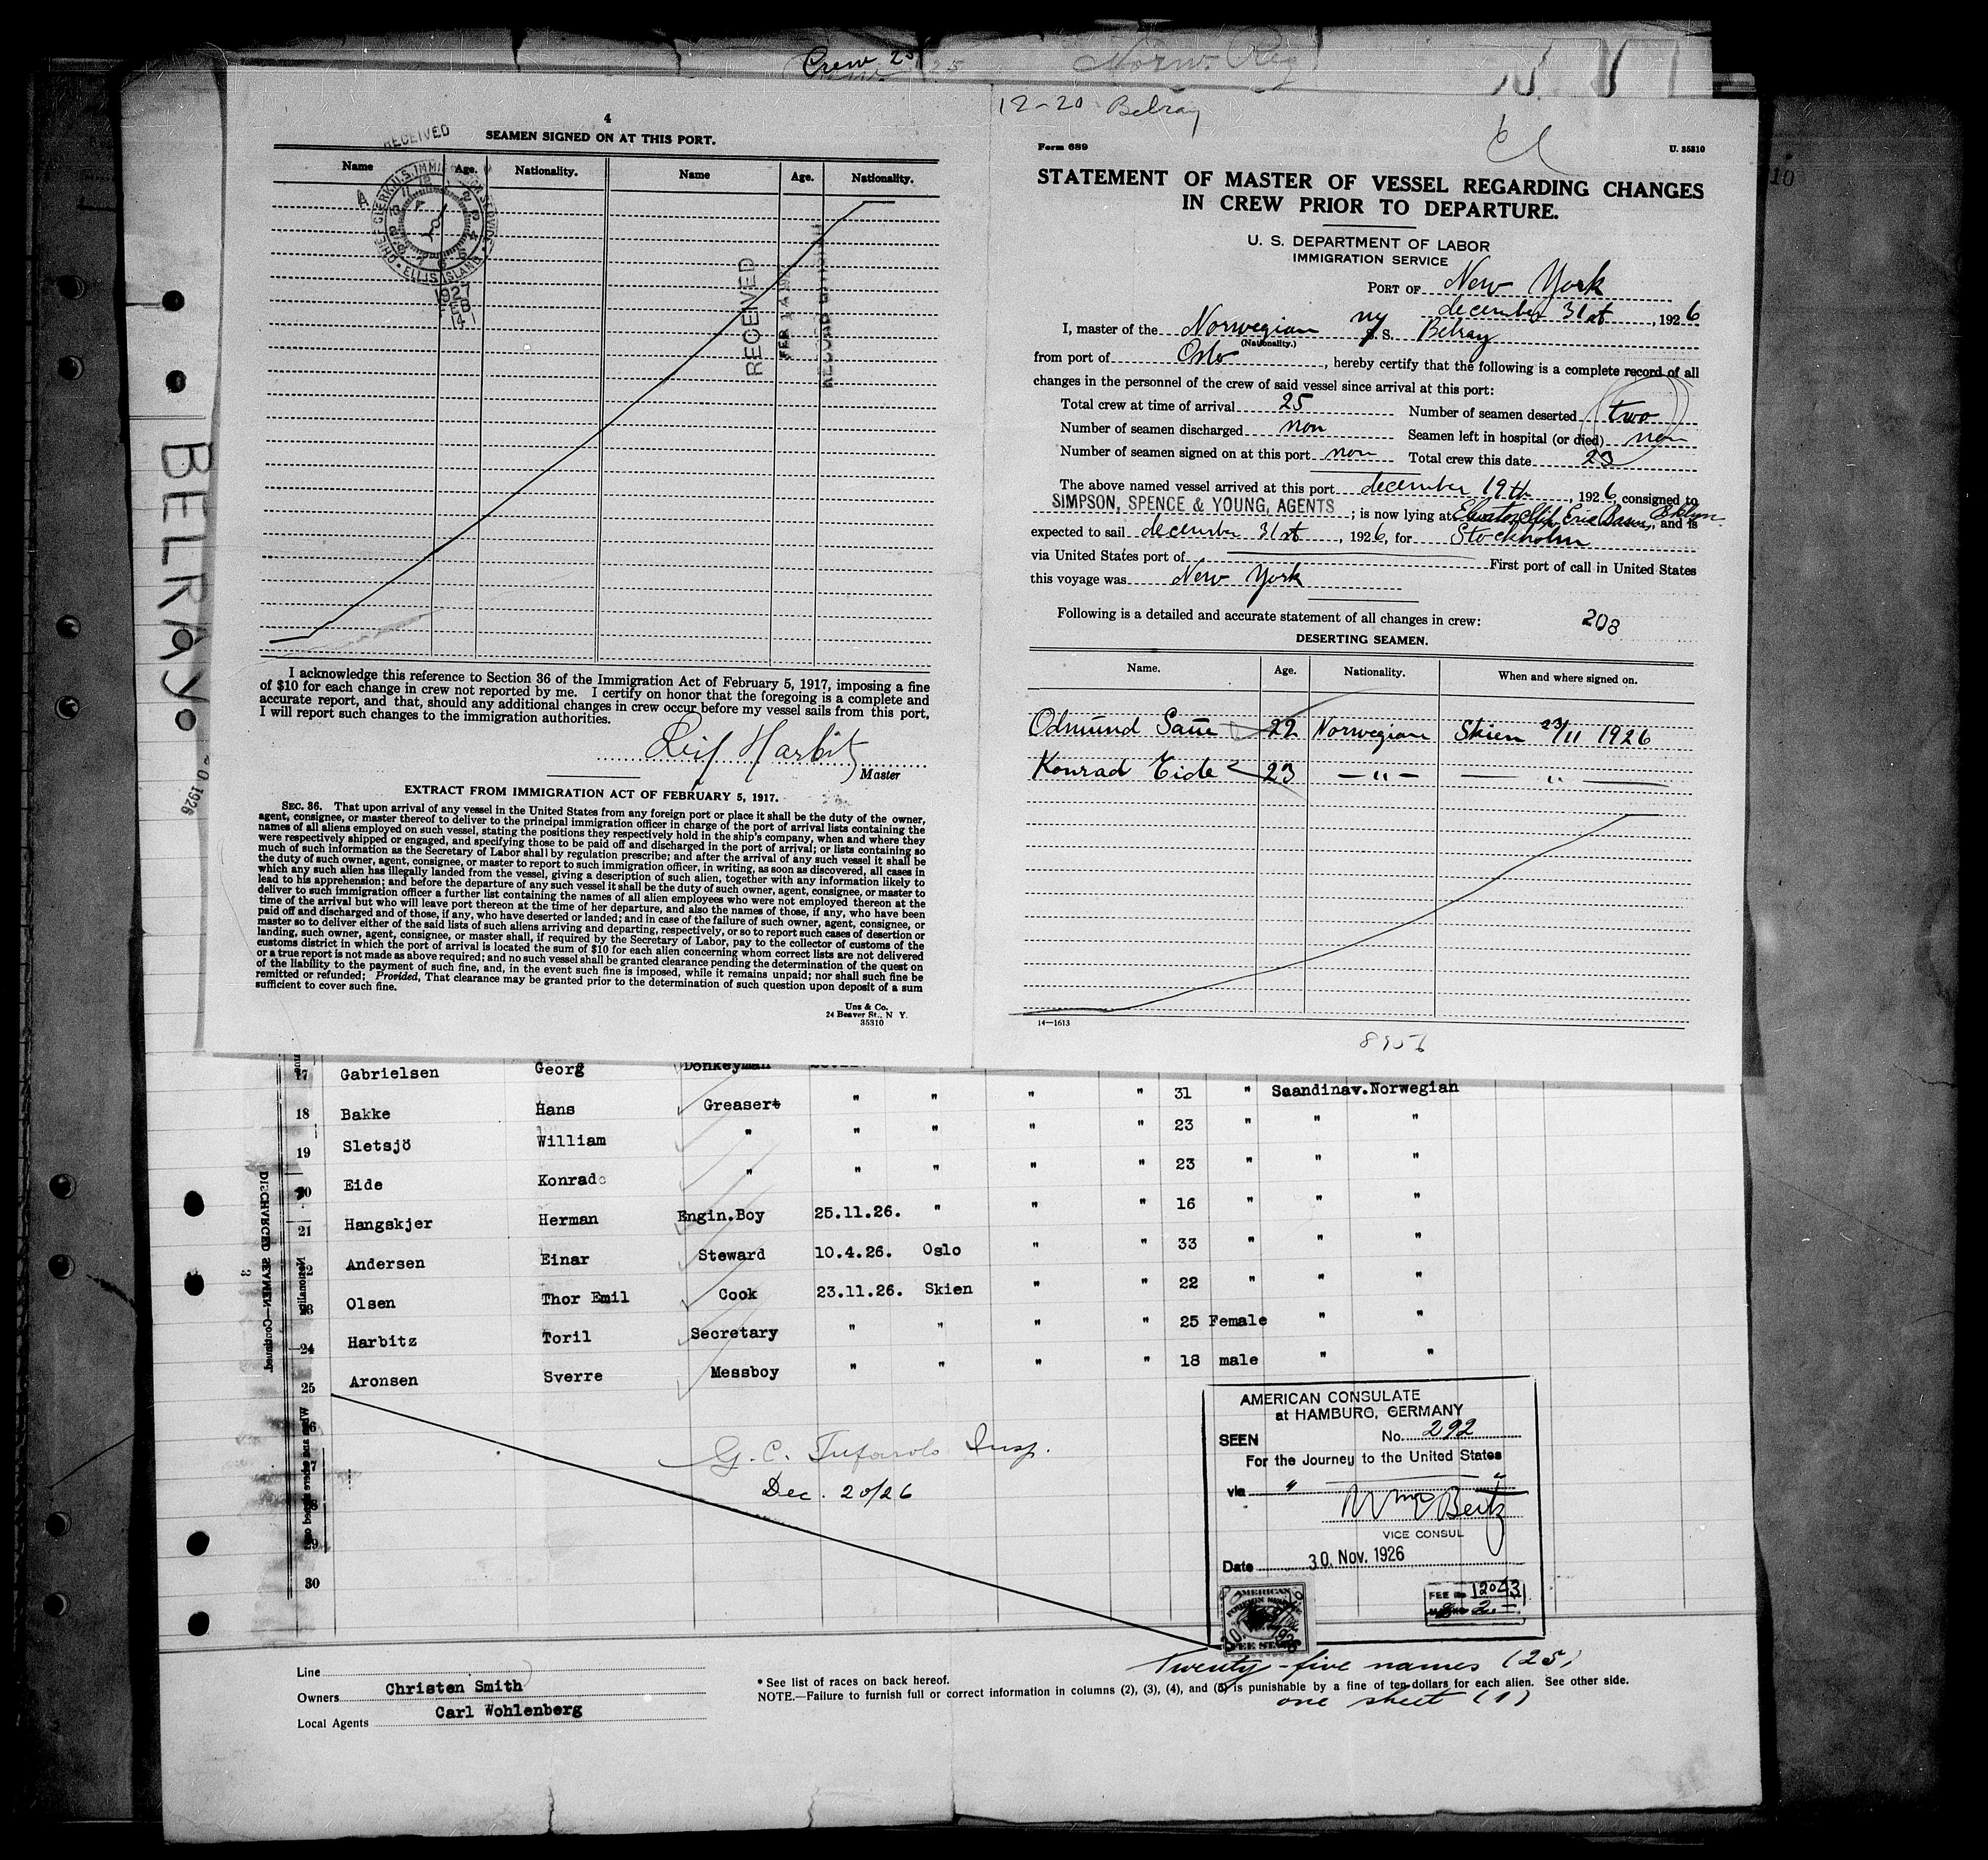 Crew 25
Norw. Reg
12-20 Belray
BELRAY
4
SEAMEN SIGNED ON AT THIS PORT.
Name Age. Nationality. Name Age. Nationality.
RECEIVED
CHIEF CLERK U.S. IMMIGRATION SERVICE
ELLIS ISLAND
1927
FEB
14
RECEIVED
FEB 14
I acknowledge this reference to Section 36 of the Immigration Act of February 5, 1917, imposing a fine
of $10 for each change in crew not reported by me. I certify on honor that the foregoing is a complete and
accurate report, and that, should any additional changes in crew occur before my vessel sails from this port,
I will report such changes to the immigration authorities.
Leif Harbitz
Master
EXTRACT FROM IMMIGRATION ACT OF FEBRUARY 5, 1917.
SEC. 36. That upon arrival of any vessel in the United States from any foreign port or place it shall be the duty of the owner,
agent, consignee, or master thereof to deliver to the principal immigration officer in charge of the port of arrival lists containing the
names of all aliens employed on such vessel, stating the positions they respectively hold in the ship's company, when and where they
were respectively shipped or engaged, and specifying those to be paid off and discharged in the port of arrival; or lists containing so
much of such information as the Secretary of Labor shall by regulation prescribe; and after the arrival of any such vessel it shall be
the duty of such owner, agent, consignee, or master to report to such immigration officer, in writing, as soon as discovered, all cases in
which any such alien has illegally landed from the vessel, giving a description of such alien, together with any information likely to
lead to his apprehension; and before the departure of any such vessel it shall be the duty of such owner, agent, consignee, or master to
deliver to such immigration officer a further list containing the names of all alien employees who were not employed thereon at the
time of the arrival but who will leave port thereon at the time of her departure, and also the names of those, if any, who have been
paid off and discharged and of those, if any, who have deserted or landed; and in case of the failure of such owner, agent, consignee, or
master so to deliver either of the said lists of such aliens arriving and departing, respectively, or so to report such cases of desertion or
landing, such owner, agent, consignee, or master shall, if required by the Secretary of Labor, pay to the collector of customs of the
customs district in which the port of arrival is located the sum of $10 for each alien concerning whom correct lists are not delivered
or a true report is not made as above required; and no such vessel shall be granted clearance pending the determination of the quest on
of the liability to the payment of such fine, and, in the event such fine is imposed, while it remains unpaid; nor shall such fine be
remitted or refunded; Provided, That clearance may be granted prior to the determination of such question upon deposit of a sum
sufficient to cover such fine.
Unz & Co.
24 Beaver St., N Y.
35310
Form 689 U. 35310
STATEMENT OF MASTER OF VESSEL REGARDING CHANGES
IN CREW PRIOR TO DEPARTURE.
U. S. DEPARTMENT OF LABOR
IMMIGRATION SERVICE
PORT OF New York
december 31st, 1926
I, master of the Norwegian S. S. Belray
(Nationality.)
from port of Oslo, hereby certify that the following is a complete record of all
changes in the personnel of the crew of said vessel since arrival at this port:
Total crew at time of arrival 25 Number of seamen deserted two
Number of seamen discharged non Seamen left in hospital (or died) non
Number of seamen signed on at this port non Total crew this date 23
The above named vessel arrived at this port december 19th, 1926, consigned to
SIMPSON, SPENCE & YOUNG, AGENTS; is now lying at Erie Basin, Bklyn, and is
expected to sail december 31st, 1926, for Stockholm
via United States port of First port of call in United States
this voyage was New York
Following is a detailed and accurate statement of all changes in crew: 208
DESERTING SEAMEN.
Name. Age. Nationality. When and where signed on.
Odmund 22 Norwegian Skien 23/11 1926
Konrad Eide 23 — " — — " —
14—1613
8956
17 Gabrielsen Georg Donkeyman " " " " 31 " Scandinav. Norwegian
18 Bakke Hans Greaser " " " " 23 " " "
19 Sletsjö William " " " " " 23 " " "
20 Eide Konrad " " " " " 16 " " "
21 Hangskjer Herman Engin.Boy 25.11.26. " " " 33 " " "
Andersen Einar Steward 10.4.26. Oslo " " 22 " " "
Olsen Thor Emil Cook 23.11.26. Skien " " 25 Female " "
24 Harbitz Toril Secretary " " " " 18 male " "
25 Aronsen Sverre Messboy " "
30
DISCHARGED SEAMEN—Continued.
3
G. C. Tufarolo Insp.
Dec. 20/26
AMERICAN CONSULATE
at HAMBURG, GERMANY
SEEN No. 292
For the Journey to the United States
via " "
VICE CONSUL
Date 30. Nov. 1926
AMERICAN
FOREIGN SERVICE
FEE STAMP
FEE No 12043
Twenty-five names (25)
one sheet (1)
Line
Owners Christen Smith
Local Agents Carl Wohlenberg
* See list of races on back hereof.
NOTE.—Failure to furnish full or correct information in columns (2), (3), (4), and (5) is punishable by a fine of ten dollars for each alien. See other side.